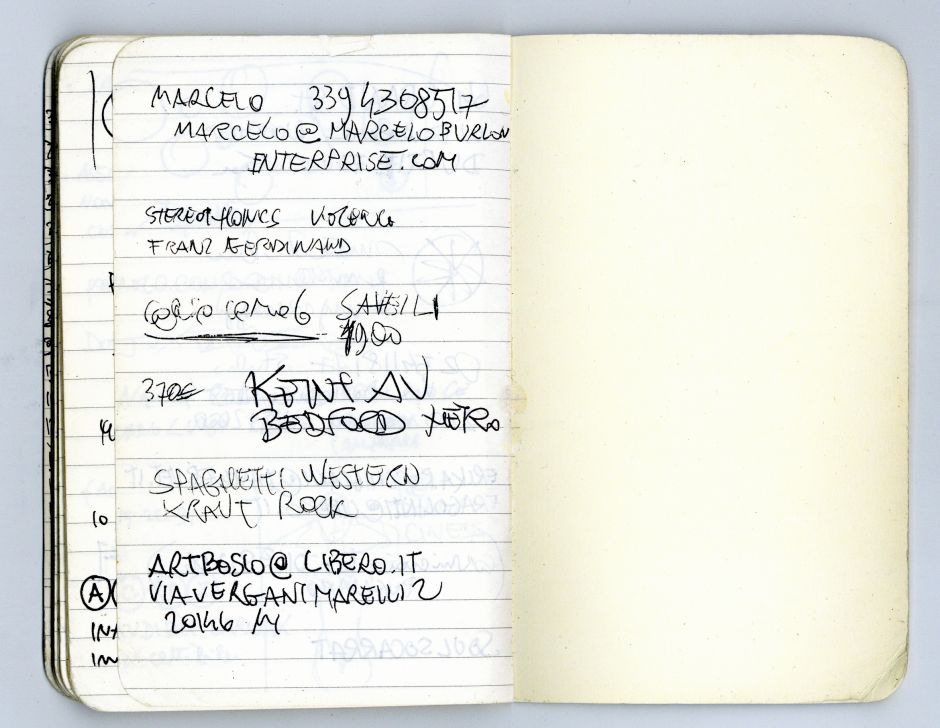 MARCELO 339 4368517
MARCELO@MARCELOBURLON
ENTERPRISE.COM
STEREOPHONICS
FRANZ FERDINAND
SAVELLI
1900
370€ KENT AV
BEDFORD METRO
SPAGHETTI WESTERN
KRAUT ROCK
ARTBOSIO@LIBERO.IT
VIA VERGANI MARELLI 2
20146 M
10
A